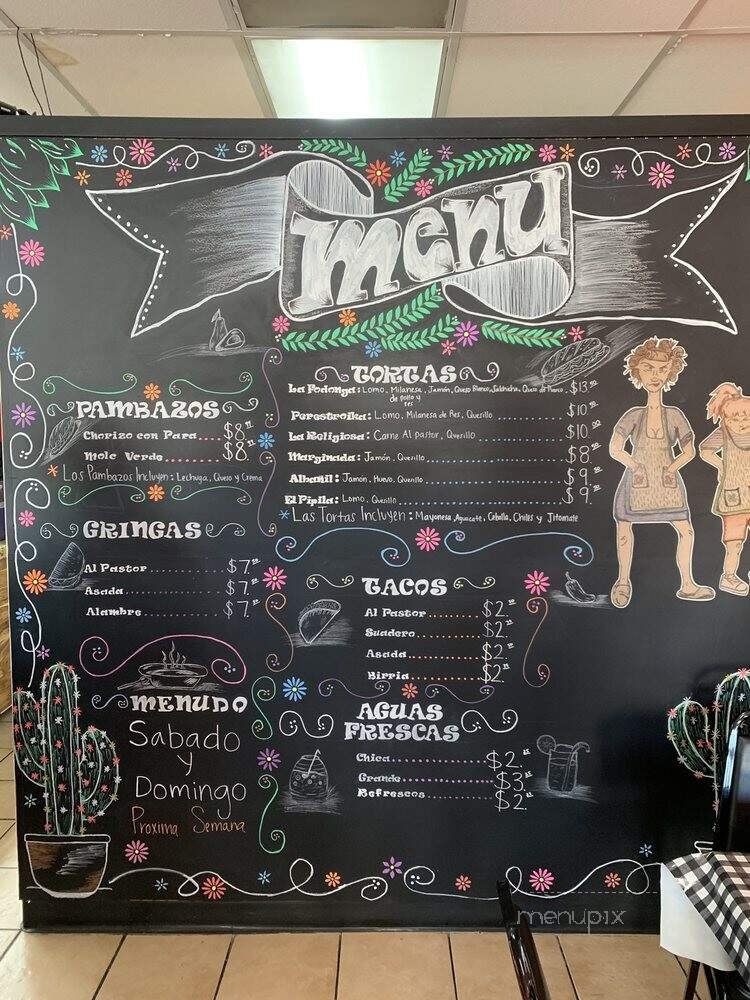 menu
TORTAS
La Fodonga: Lomo, Milanesa, Jamón, Queso Blanco, Salchicha, Queso de Puerco. $13.
de pollo y
res
Perestroika: Lomo, Milanesa de Res, Quesillo $10.
La Religiosa: Carne Al pastor, Quesillo $10
Marginada: Jamón, Quesillo $8
Albanil: Jamón, Huevo, Quesillo $9.
El Pipila: Lomo, Quesillo $9
*Las Tortas Incluyen: Mayonesa, Aguacate, Cebolla, Chiles y Jitomate
PAMBAZOS
Chorizo con Papa..... $8.
Mole Verde........ $8.
*Los Pambazos Incluyen: Lechuga, Queso y Crema
GRINGAS
Al Pastor............ $7.
Asada............ $7.
Alambre............ $7.
TACOS
Al Pastor......... $2.
Suadero......... $2.
Asada......... $2.
Birria......... $2.
MENUDO
Sabado
y
Domingo
Proxima Semana
AGUAS
FRESCAS
Chica............ $2.
Grande............ $3.
Refrescos......... $2.
menupix